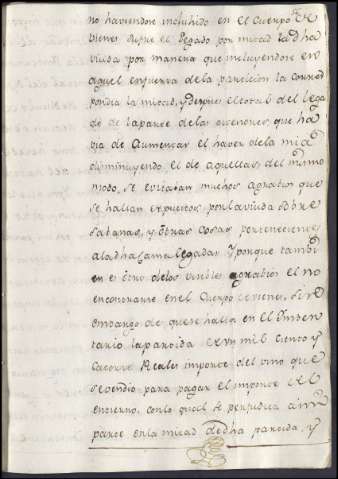 no haviendose incluhido en el Cuerpo de
bienes sufre el legado por mitad la dha
viuda por manera que incluyendose en
aquel en fuerza de la particion la corres
pondia la mitad, y despues el total del lega
do de la parte de las que ha
via de aumentar el haver de la mia
disminuyendo el de aquellas del mismo
modo, se evitaran muchos agravios que
se hallan expuestos por la viuda sobre
sabanas, y otras cosas pertenecientes
a la dha cama legada: y porque tambi
en es otro de los visibles agrabios el no
encontrarse en el Cuerpo de vienes, sin
embargo de que se halla en el Imben
tario la partida de mil ciento y
catorce Reales importe del vino que
se vendio para pagar el importe del
entierro, con lo qual se perjudica a mi
parte en la mitad de dha partida, y